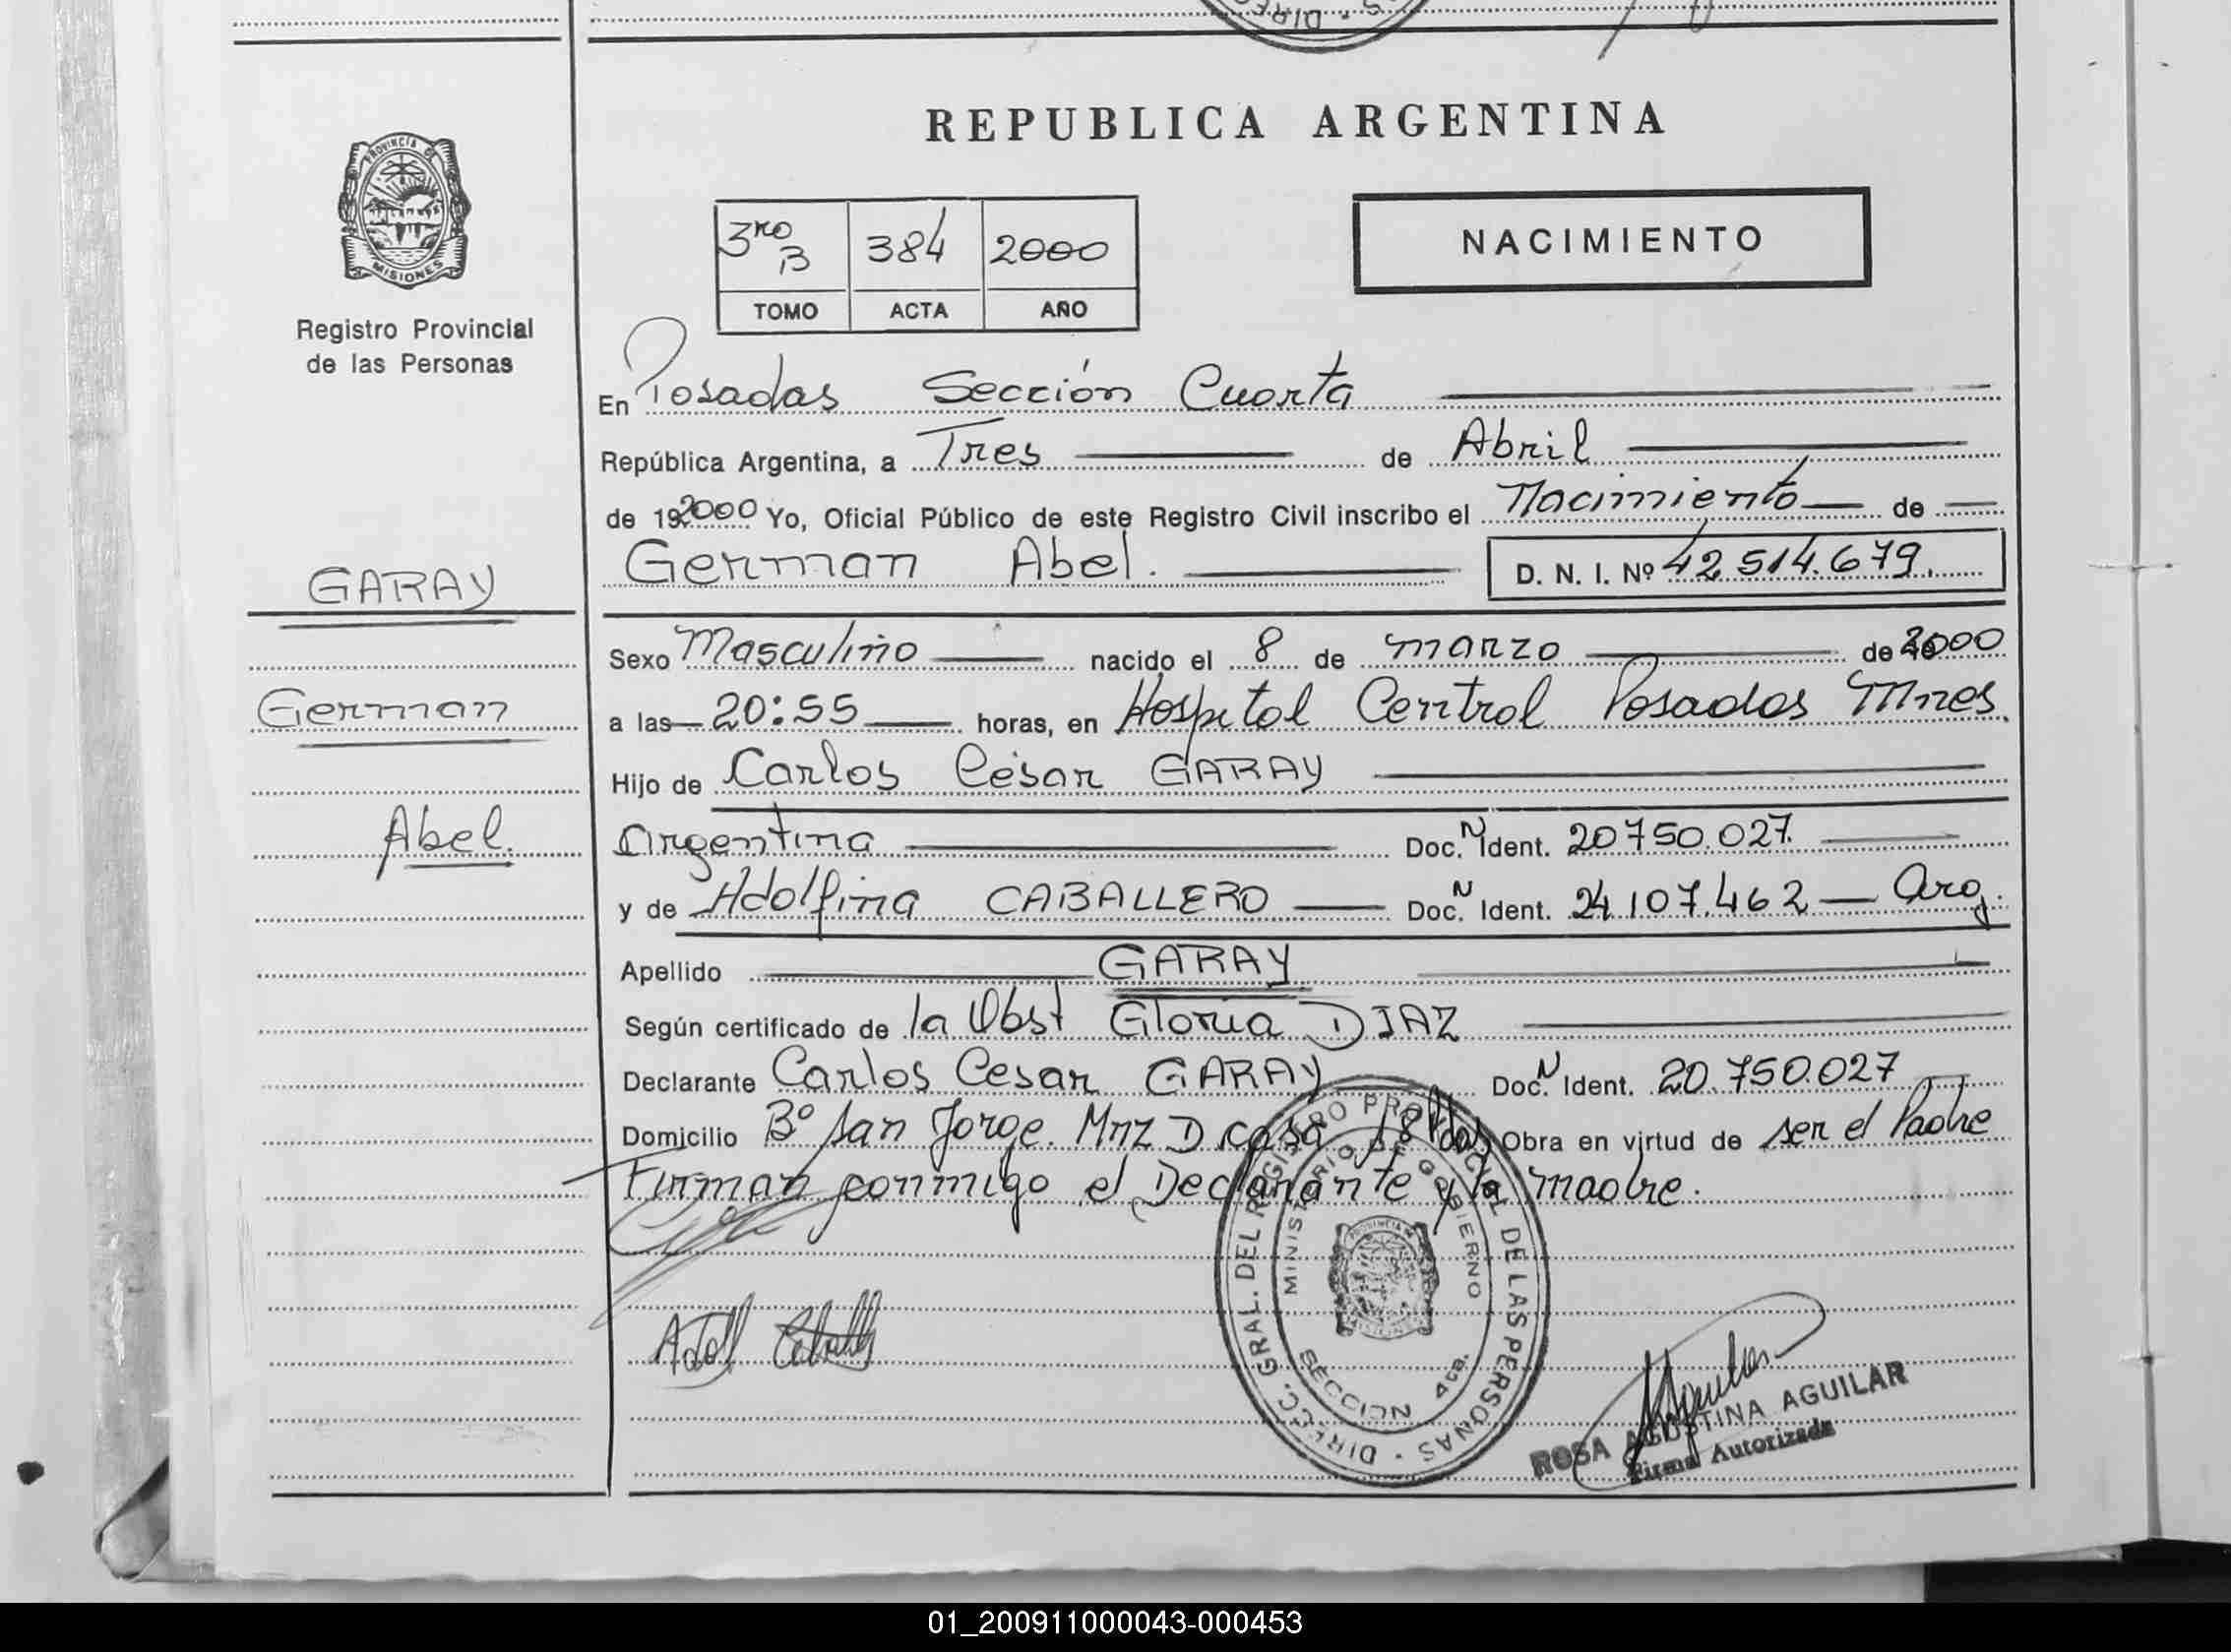 REPUBLICA ARGENTINA
PROVINCIA DE
MISIONES
Registro Provincial
de las Personas
3ro B 384 2000
TOMO ACTA AÑO
NACIMIENTO
En Posadas Sección Cuarta
República Argentina, a Tres de Abril
de 192000 Yo, Oficial Público de este Registro Civil inscribo el Nacimiento de
German Abel. D. N. I. Nº 42.514.679.
GARAY
German
Abel.
Sexo Masculino nacido el 8 de marzo de 2000
a las 20:55 horas, en Hospital Central Posadas Mnes.
Hijo de Carlos César GARAY
Argentina Doc. N Ident. 20750.027.
y de Adolfina CABALLERO Doc. N Ident. 24.107.462 Arg.
Apellido GARAY
Según certificado de la Obst Gloria DIAZ
Declarante Carlos Cesar GARAY Doc. N Ident. 20.750.027
Domicilio Bº San Jorge. Mnz D casa 18 Pdas Obra en virtud de ser el Padre
Firman conmigo el Declarante y la madre.
DIRECC. GRAL. DEL REGISTRO PROVINCIAL DE LAS PERSONAS
MINISTERIO DE GOBIERNO
SECCION 4ta.
ROSA AGUSTINA AGUILAR
Firma Autorizada
01_200911000043-000453